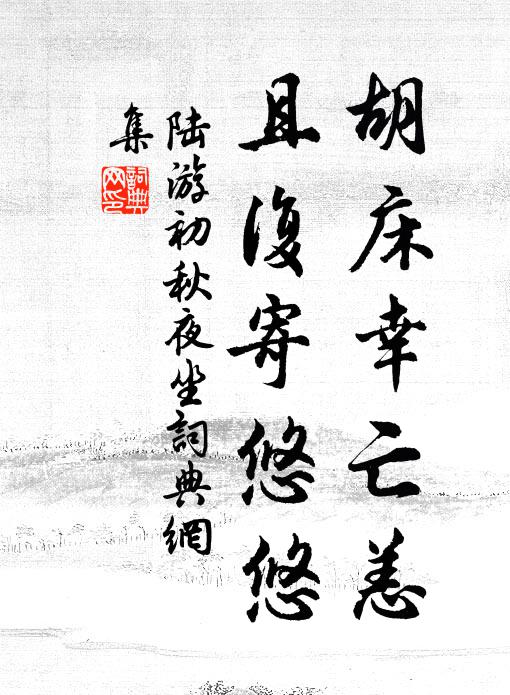 胡床幸亡恙
且復寄悠悠
陆游初秋夜坐詞典網
集
詞典网印